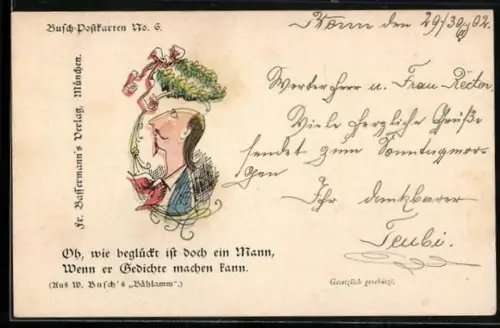 Busch-Postkarten No. 6.
Fr. Bassermann's Verlag, München.
Oh, wie beglückt ist doch ein Mann,
Wenn er Gedichte machen kann.
(Aus W. Busch's „Bählamm".)
den 29/30 02.
Werter Herr u. Frau Rector.
Viele herzliche Grüße
sendet zum Sonntagmor-
gen
Ihr dankbarer
Teubi.
Gesetzlich geschützt.